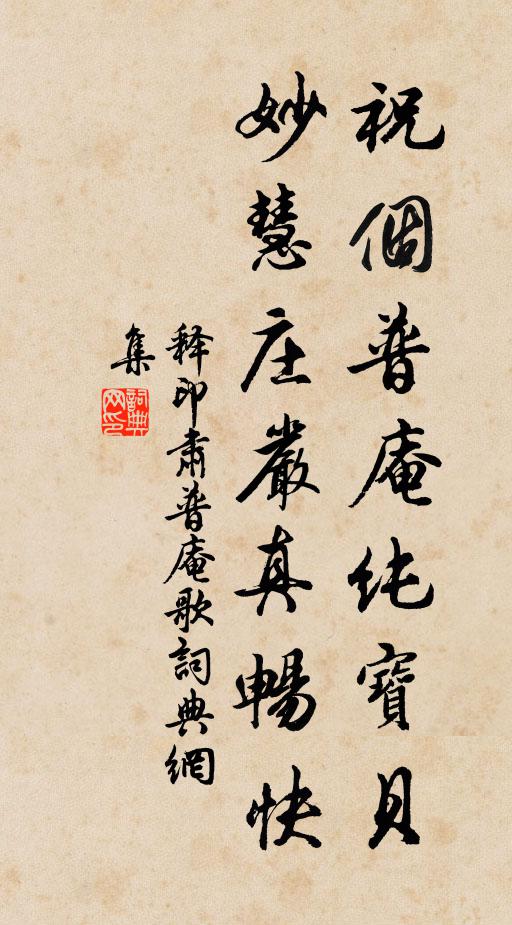 祝個普庵纯寶貝
妙慧庄嚴真暢快
释印肅普庵歌詞典網
集
詞典網印